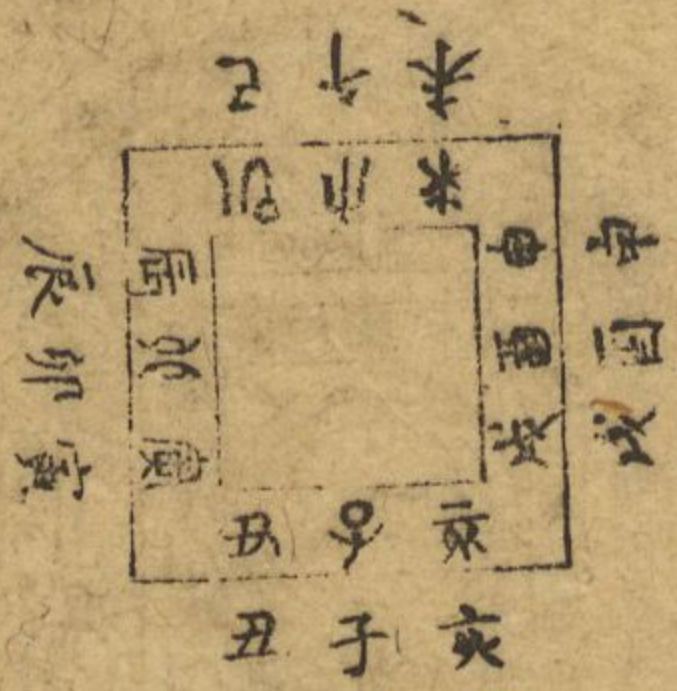 巳午未
巳午未
辰卯寅
辰卯寅
申酉戌
申酉戌
丑子亥
丑子亥